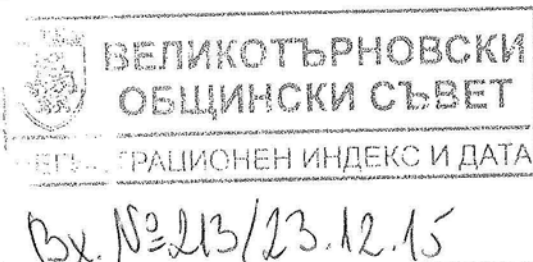 ВЕЛИКОТЪРНОВСКИ
ОБЩИНСКИ СЪВЕТ
РЕГИСТРАЦИОНЕН ИНДЕКС И ДАТА
Вх. №213/23.12.15